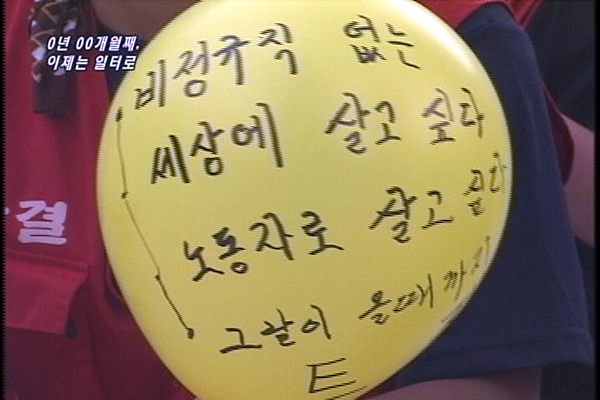 0년 00개월째,
이제는 일터로
비정규직 없는
씨상에 살고 싶다
노동자로 살고 싶다
그날이 올때까지
트
결